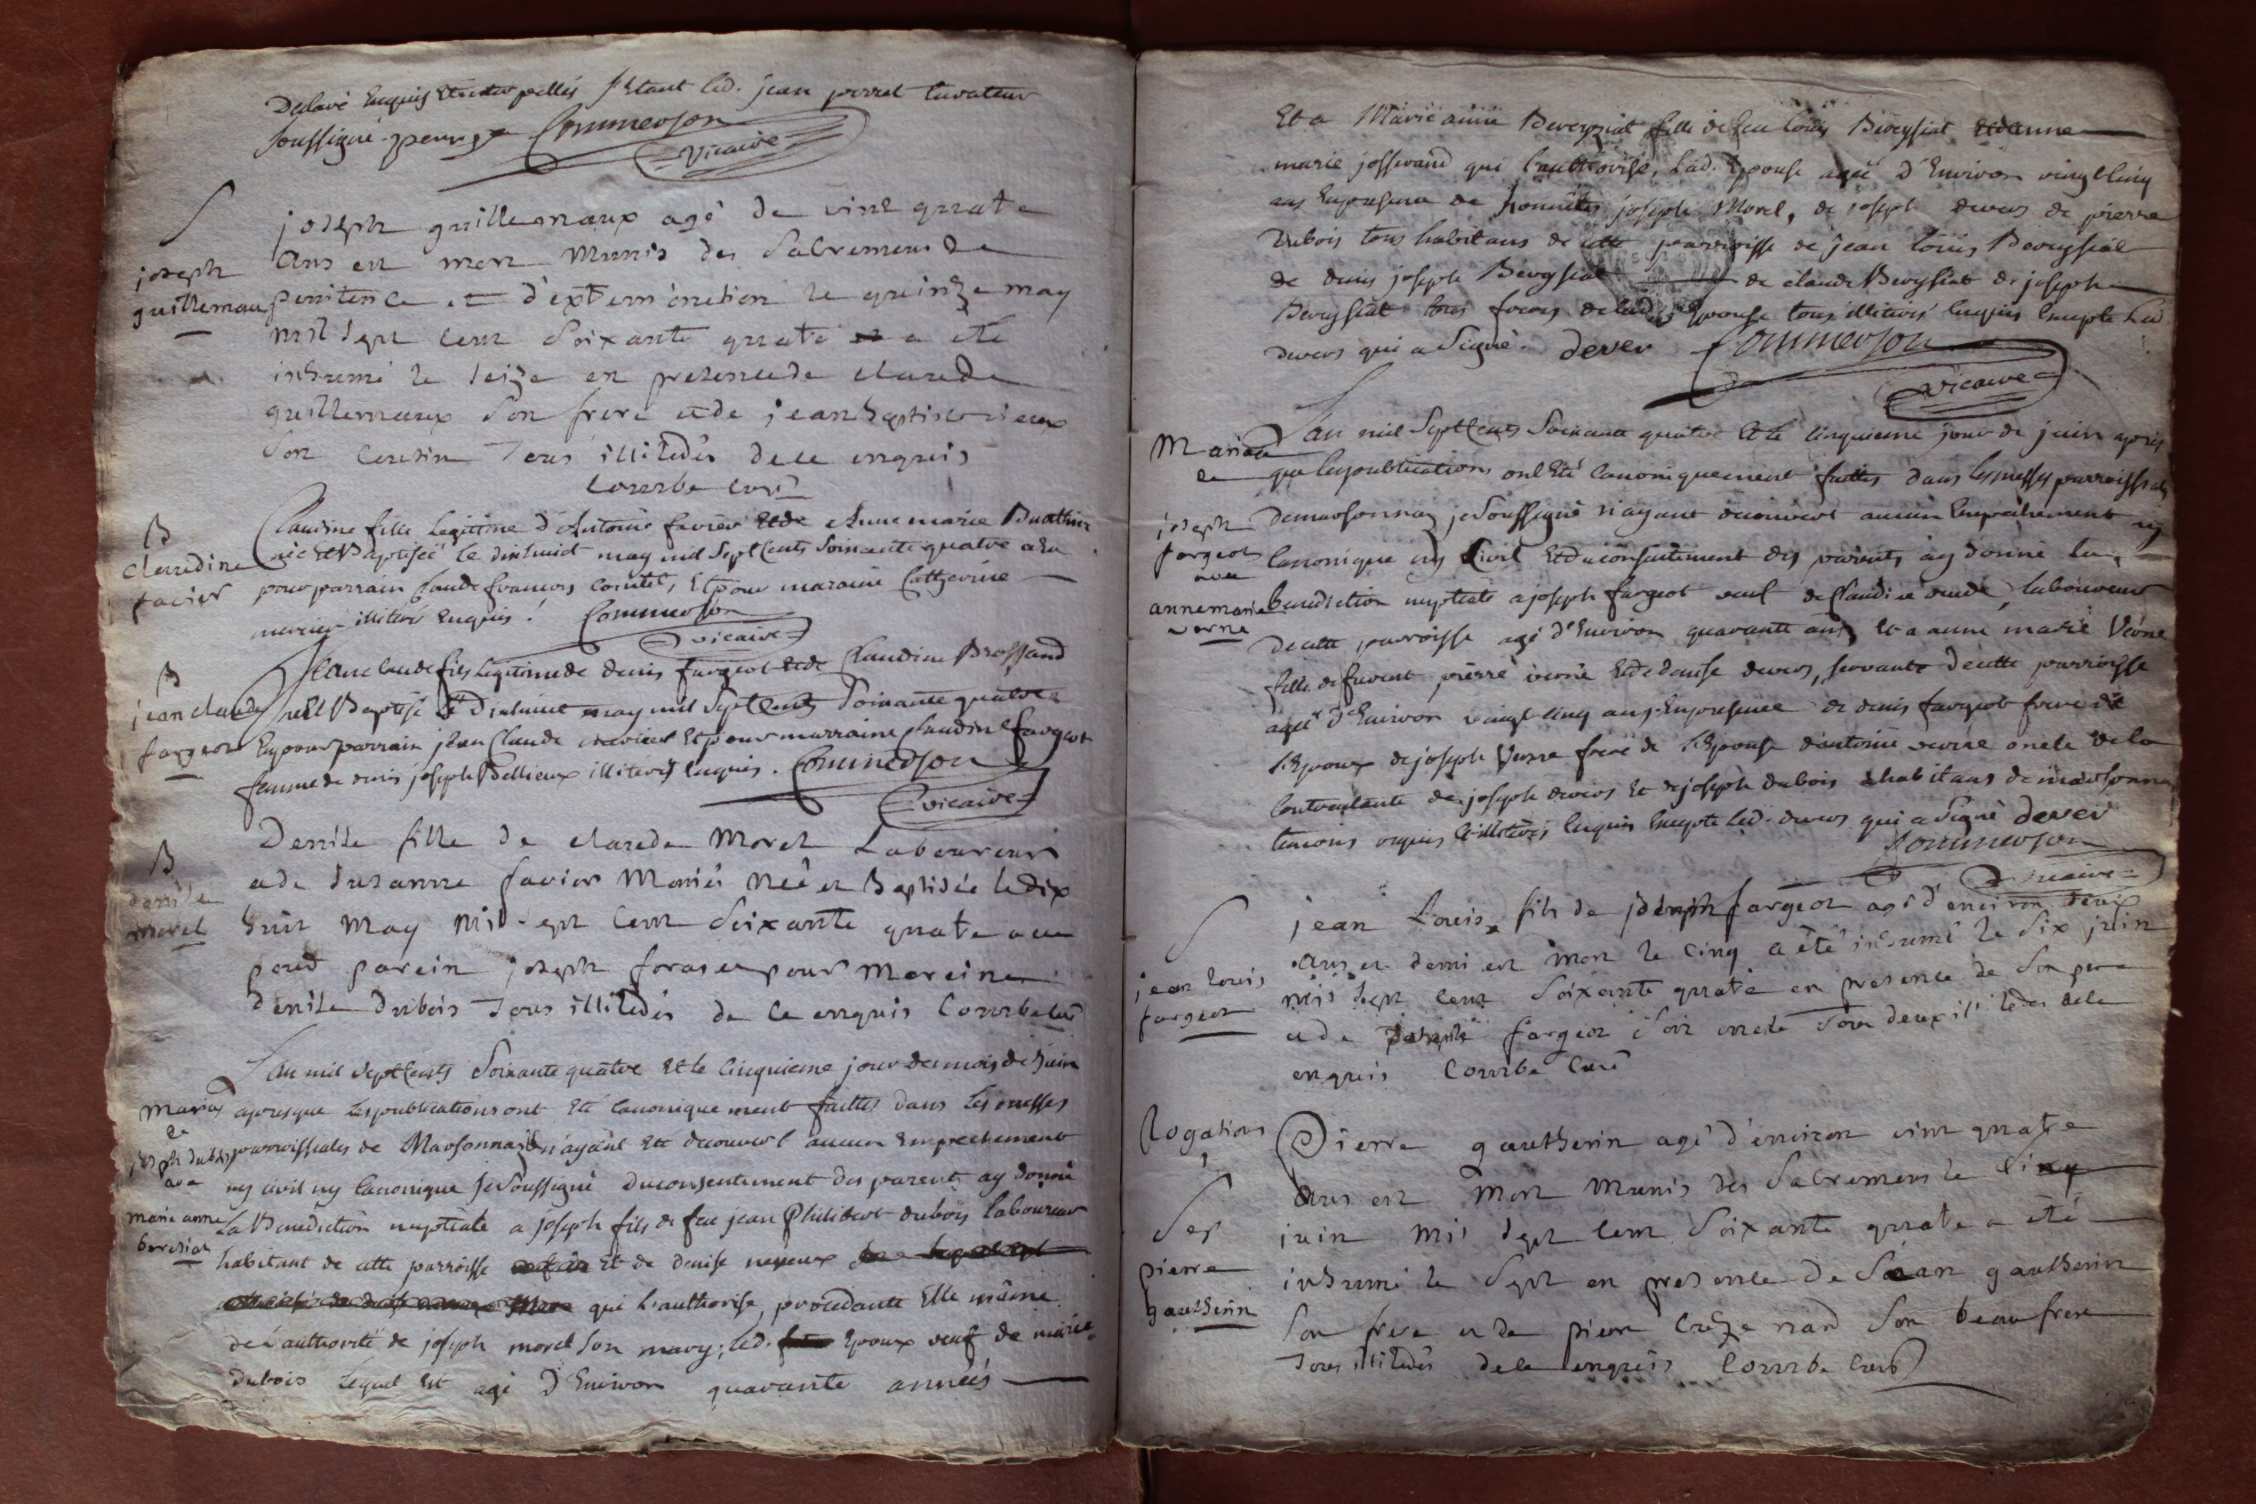 Declaré Enquis et interpellés Etant led. jean perret curateur
soussigné. perret Commerson
vicaire
S
joseph
guillemau
joseph guillemaux agé de vint quatre
ans est mort munis des sacremens de
penitence et d'extremonction le quinze may
mil sept cent soixante quatre a eté
inhumé le seize en presence de claude
guillemaux son frere et de jean baptiste vieux
son cousin tous illiterés de ce enquis
Courbe curé
B
claudine
favier
Claudine fille legitime d'Antoine favier et de Anne marie Buathier
née et Baptisée le dixhuict may mil sept cents soixante quatre a eu
pour parrain Claude francois comte, et pour maraine Catherine
mercier illiterés enquis. Commerson
vicaire
B
jean claude
fargeot
jean claude fils legitime de denis fargeot et de Claudine Brossand
né et Baptisé le Dixhuict may mil sept cents soixante quatre a
Eu pour parrain jean Claude mercier et pour marraine claudine fargeot
femme de denis joseph Bellieux illiterés enquis. Commerson
vicaire
B
denise
morel
Denise fille de claude Morel Laboureur
et de suzanne favier Mariés née et baptisée le dix
huit may mil sept cent soixante quatre a eu
pour parein joseph foras et pour mareine
denise dubois tous illiterés de ce enquis Courbe curé
mariage
de
joseph dubois
avec
marie anne
beresiat
L'an mil sept cents soixante quatre et le cinquieme jour du mois de juin
apres que les publications ont eté canoniquement faittes dans les messes
parroissiales de Marsonnaz n'ayant eté decouvert aucun empechement
ny civil ny canonique je soussigné du consentement des parents ay donné
la Benediction nuptiale a joseph fils de feu jean Philibert dubois laboureur
habitant de cette parroisse et de denise neveux
qui l'authorise, procedante Elle même
de l'authorité de joseph morel son mary; led. Epoux veuf de marie
dubois lequel est agé D'Environ quarante années
Et a Marie anne Bereyziat fille de feu louis Bereysiat et d'anne
marie josserand qui l'authorise, lad. Epouse agée D'Environ vingt cinq
ans En presence de honnetes joseph Morel, de joseph devers de pierre
Dubois tous habitans de cette parroisse de jean louis Bereysiat
de denis joseph Bereysiat de claude Bereysiat de joseph
Bereysiat tous freres de lad. Epouse tous illiterés enquis Excepté led
devers qui a signé. dever Commerson
vicaire
Mariage
de
joseph
fargeot
avec
anne marie
verne
L'an mil sept cents soixante quatre et le cinquieme jour de juin après
que les publications ont eté canoniquement faittes dans les messes parroissiales
de marsonnaz je soussigné n'ayant decouvert aucun Empechement ny
canonique ny Civil et du consentement des parents ay donné la
benediction nuptiale a joseph fargeot veuf de claudine laboureur
de cette parroisse agé d'Environ quarante ans et a anne marie Verne
fille de pierre verne et de denise devers, servante de cette parroisse
agée d'Environ vingt cinq ans. En presence de denis fargeot frere de
l'Epoux de joseph Verne frere de l'Epouse d'antoine verne oncle de la
contractante de joseph devers et de joseph dubois habitans de marsonnaz
temoins requis et illiterés enquis Excepté led. devers qui a signé dever
Commerson
vicaire
S
jean louis
fargeot
jean Louis fils de joseph fargeot agé d'environ deux
ans et demi est mort le cinq a été inhumé le six juin
mil sept cent soixante quatre en presence de son pere
et de fargeot son oncle tous deux illiterés de ce
enquis Courbe curé
Rogations
Sep
pierre
gautherin
Pierre gautherin agé d'environ vint quatre
ans est mort munis des sacremens le cinq
juin mil sept cent soixante quatre a été
inhumé le sept en presence de gautherin
son frere et de pierre son beau frere
tous illiterés de ce enquis Courbe curé